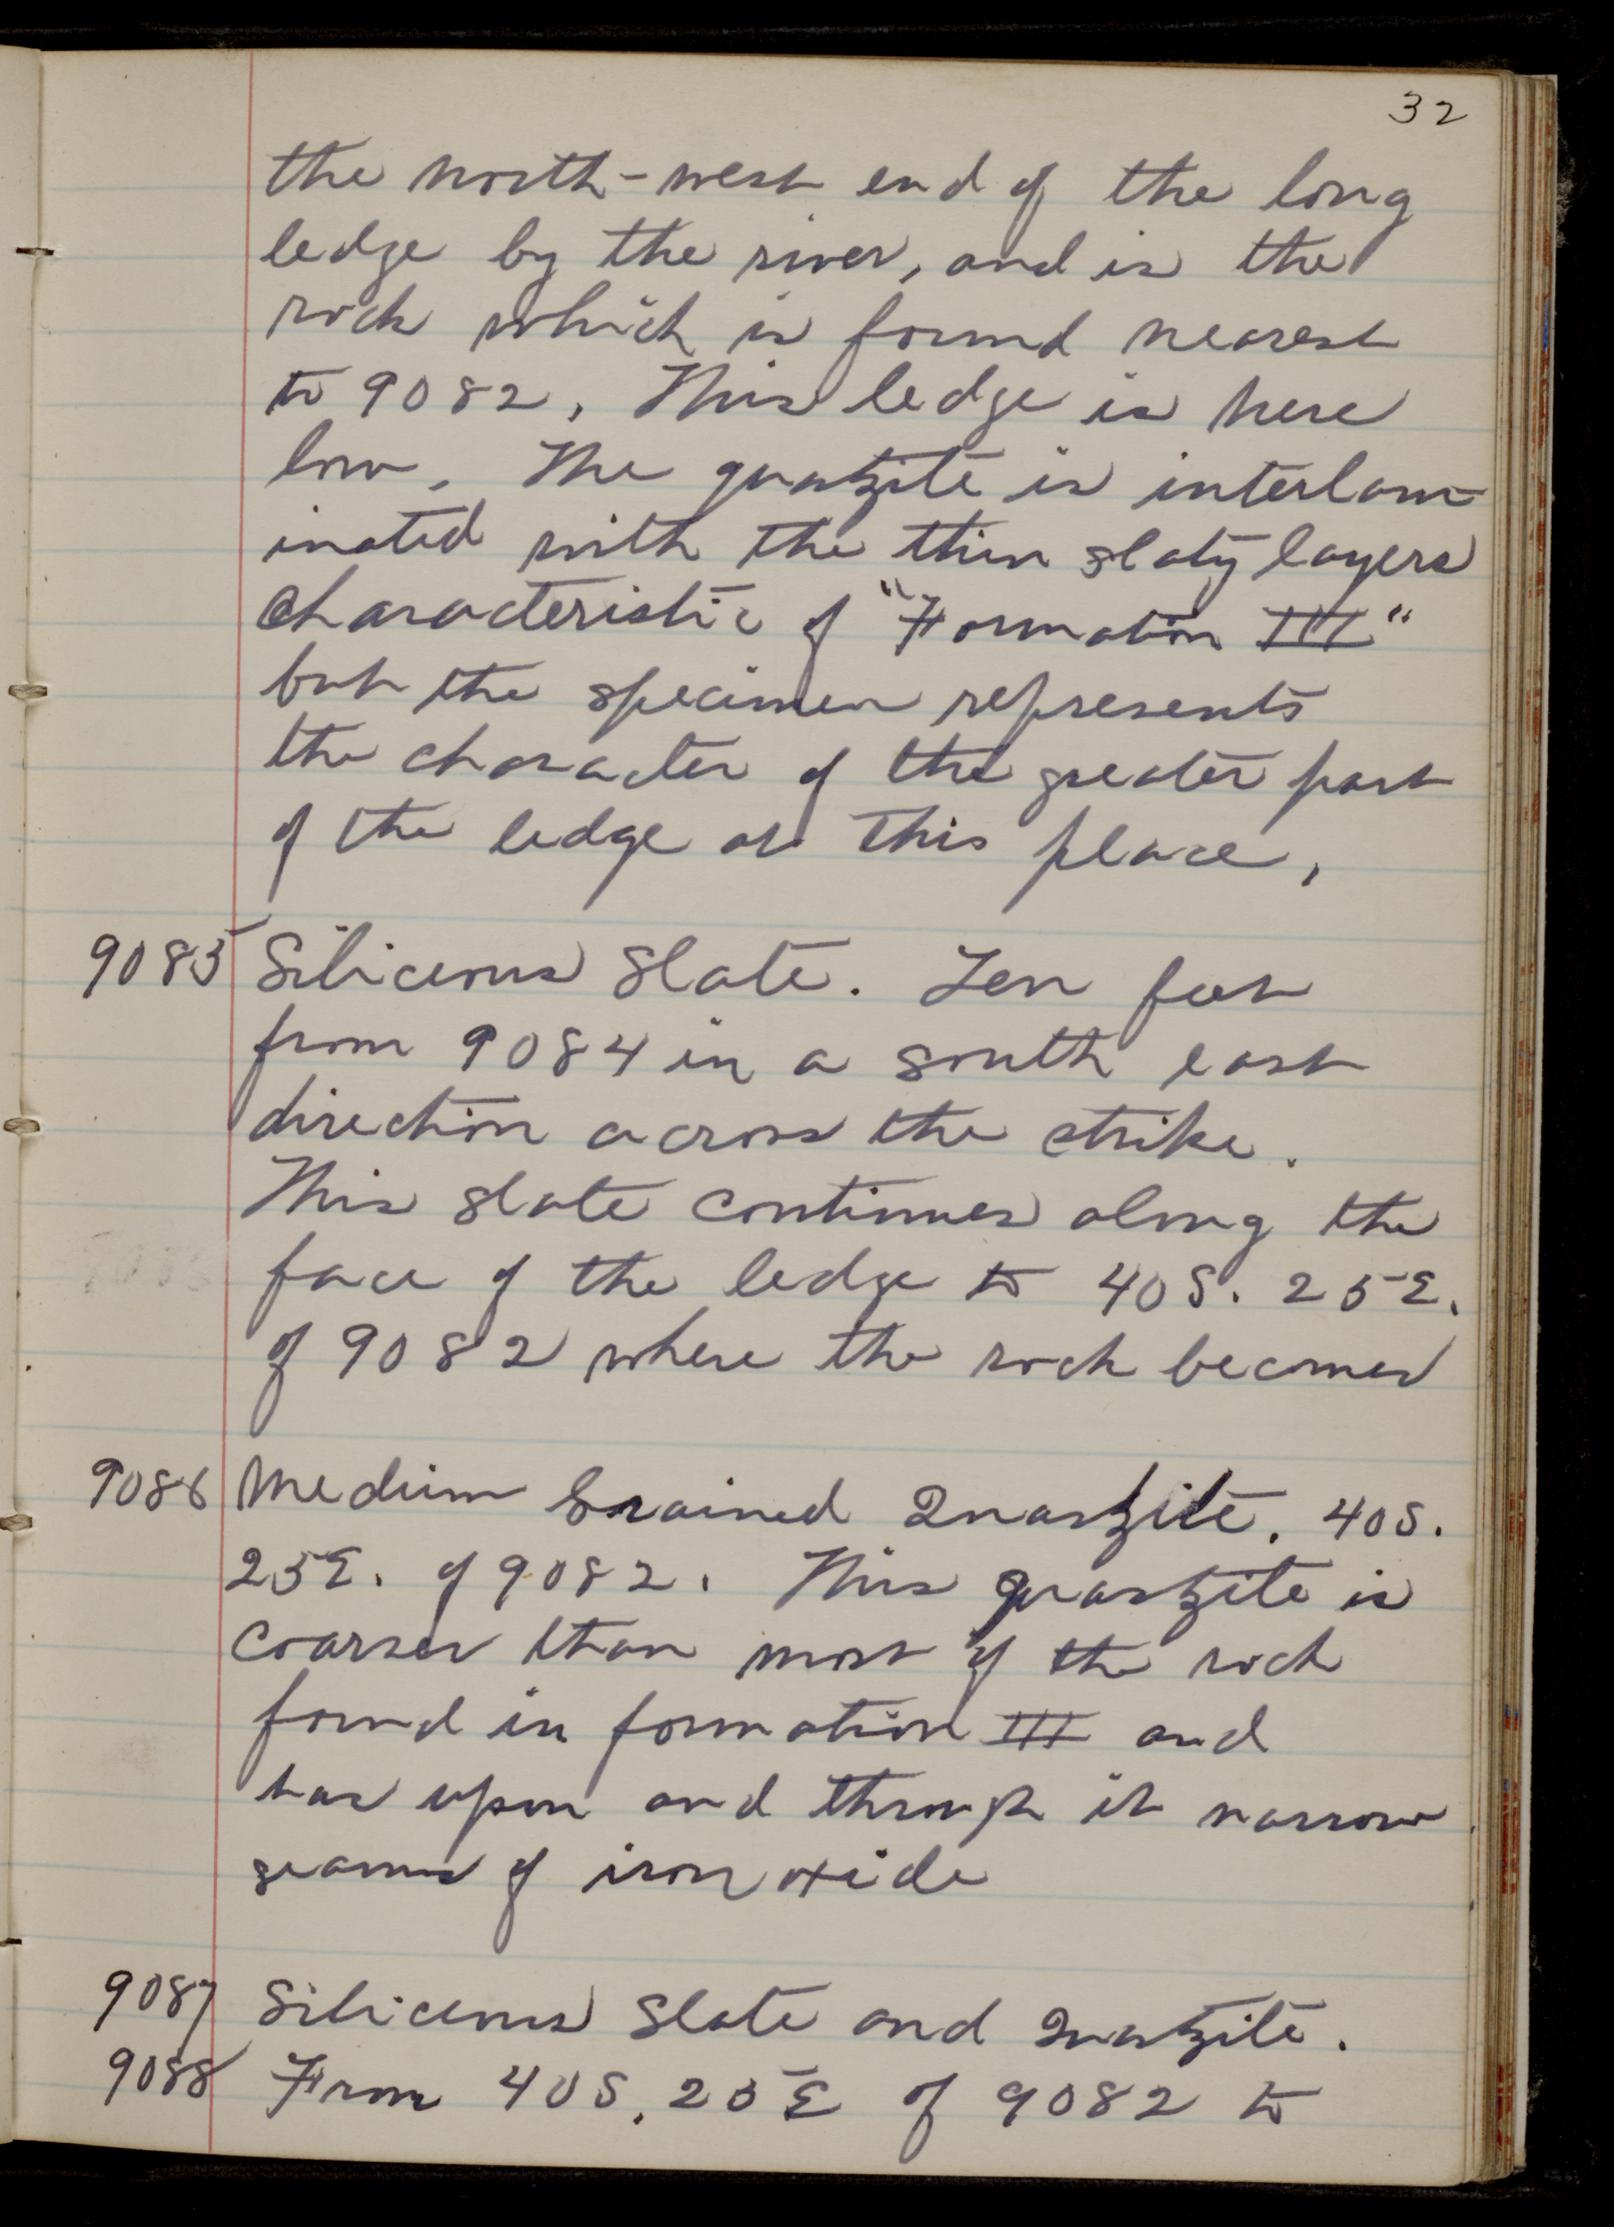 32
the north-west end of the long
ledge by the river, and is the
rock which is found nearest
to 9082, This ledge is here
low. The quartzite is interlam-
inated with the thin slaty layers
characteristic of "Formation III"
but the specimen represents
the character of the greater part
of the ledge at this place,
9085 Silicious Slate. Ten feet
from 9084 in a south east
direction across the strike.
This slate continues along the
face of the ledge to 40 S. 25 E.
of 9082 where the rock becomes
9086 Medium Grained Quartzite. 40 S.
25 E. of 9082. This quartzite is
coarser than most of the rock
found in formation III and
has upon and through it narrow
seams of iron oxide
9087 Silicious Slate and Quartzite.
9088 From 40 S. 25 E of 9082 to